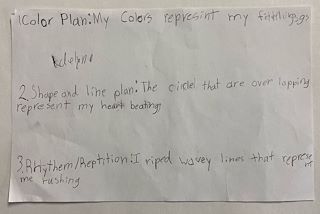 1Color Plan:My Colors represint my
2.Shape and line plan:The circlel that are over lapping
represent my heart beating
3.Rhythem/Reptition:I riped wavey lines that represent
me rushing